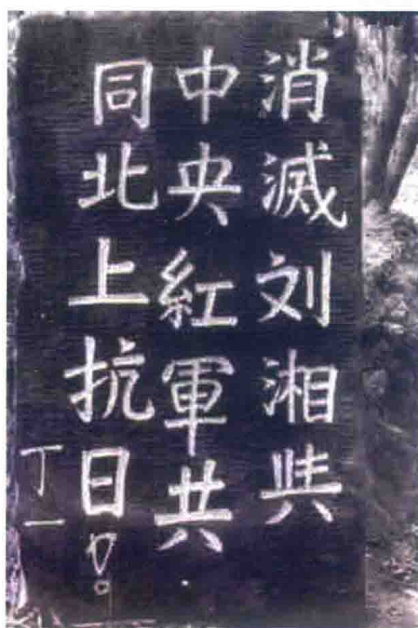 消滅刘湘與
中央紅軍共
同北上抗日!
丁一